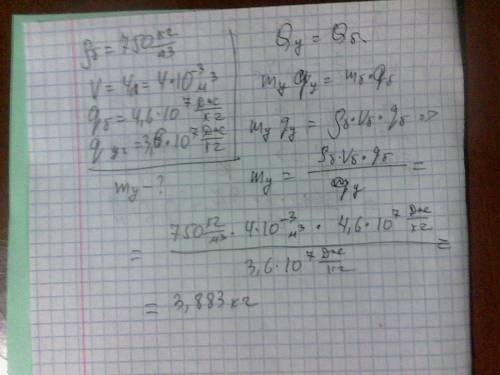 ρб = 750 кг/м3
V = 4л = 4·10⁻³ м³
qб = 4,6·10⁷ Дж/кг
q = 3,6·10⁷ Дж/кг
mу - ?
Qу = Qб
mу qу = mб·qб
mу qу = ρб·Vб·qб =>
mу = ρб·Vб·qб / qу =
= 750 кг/м3 · 4·10⁻³ м³ · 4,6·10⁷ Дж/кг / 3,6·10⁷ Дж/кг =
= 3,883 кг